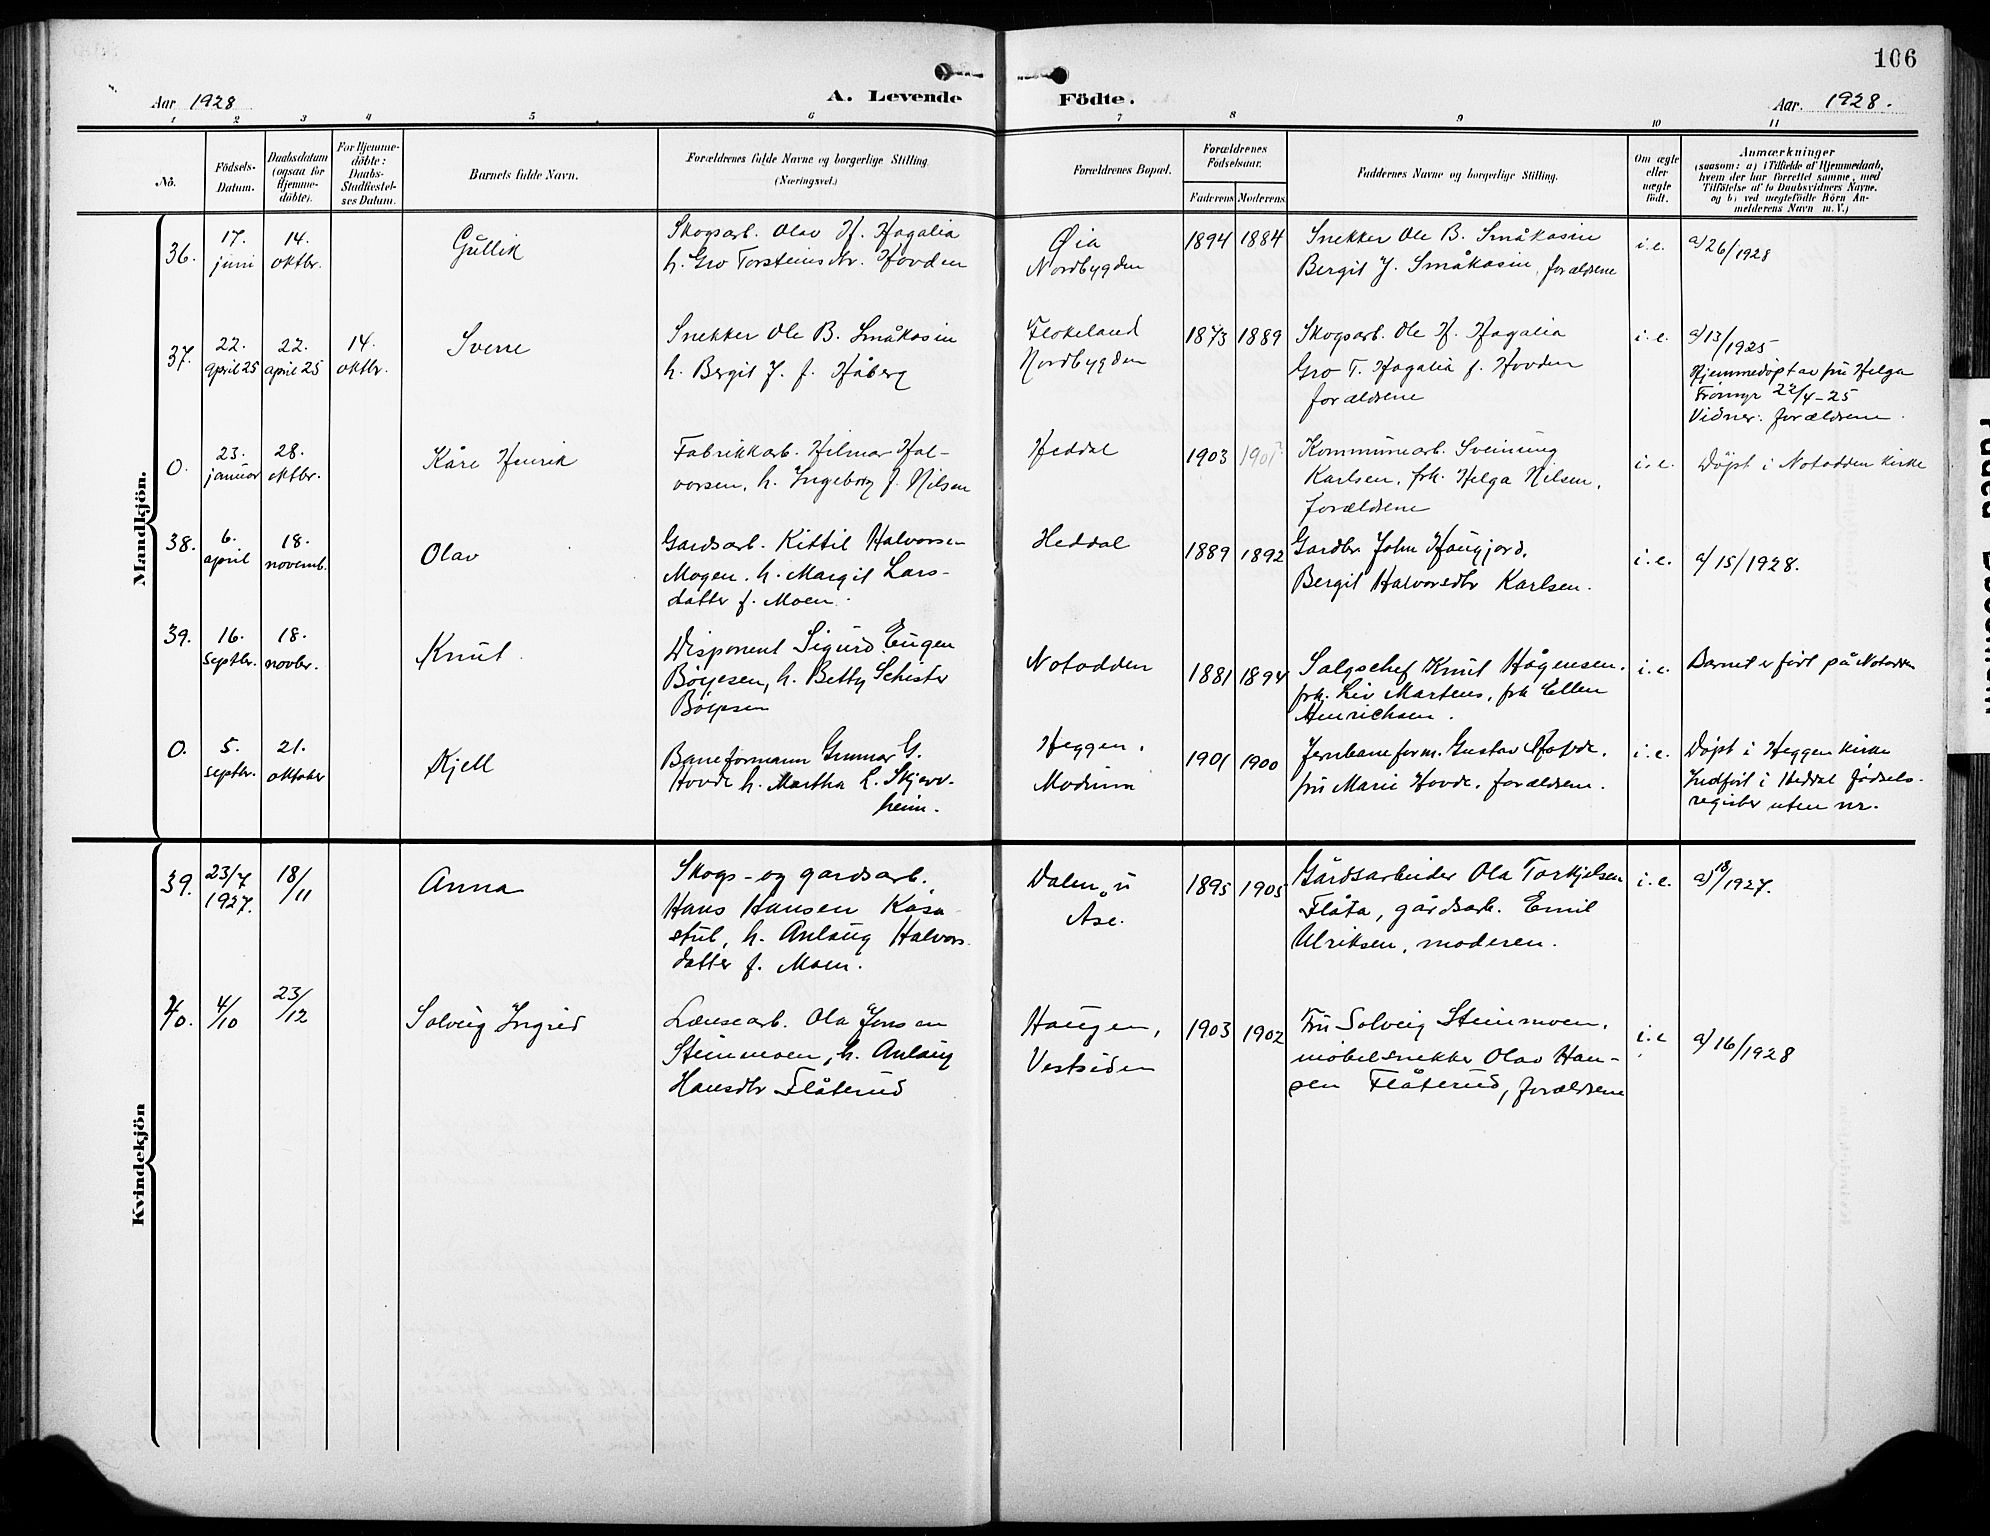 106
Aar 1928
A. Levende Födte.
Aar. 1928.
1 2 3 4 5 6 7 8 9 10 11
No.
Födsels-
Datum.
Daabsdatum
(ogsaa for
Hjemme-
döbte).
For Hjemme-
döbte:
Daabs-
Stadfæstel-
ses Datum.
Barnets fulde Navn.
Forældrenes fulde Navne og borgerlige Stilling.
(Næringsvei.)
Forældrenes Bopæl.
Forældrenes
Födselsaar.
Faderens Moderens
Faddernes Navne og borgerlige Stilling.
Om ægte
eller
uægte
født.
Anmærkninger
(saasom: a) i Tilfælde af Hjemmedaab,
hvem der har forrettet samme, med
Tilföielse af to Daabsvidners Navne,
og b) ved uægtefödte Börn An-
melderens Navn m. V.)
Mandkjön.
36.
17.
juni
14.
oktbr.
Gullik
Skogsarb. Olav H. Hagalia
h. Gro Torsteinsdtr. Hovden
Øia
Nordbygden
1894 1884
Snekker Ole B. Småkasin
Bergit J. Småkasin, forældrene
i.e.
a/26/1928
37.
22.
april 25
22.
april 25
14.
oktbr.
Sverre
Snekker Ole B. Småkasin
h. Bergit J. f. Håberg
Flokeland
Nordbygden
1873 1889
Skogsarb. Ole H. Hagalia
Gro T. Hagalia f. Hovden
forældrene
i.e.
a/13/1925
Hjemmedøpt av fru Helga
22/4-25
Vidner: forældrene.
0.
23.
januar
28.
oktbr.
Kåre Henrik
Fabrikkarb. Hilmar Hal-
vorsen, h. Ingeborg f. Nilsen
Heddal
1903
Kommunearb. Sveinung
Karlsen, frk. Helga Nilsen,
forældrene
i.e.
Døpt i Notodden kirke
38.
6.
april
18.
novemb.
Olav
Gardsarb. Kittil Halvorsen
Mogen. h. Margit Lars-
datter f. Moen.
Heddal
1889 1892
Gardbr. John Haugjord.
Bergit Halvorsdtr Karlsen.
i.e.
a/15/1928.
39.
16.
septbr.
18.
novbr.
Knut
Disponent Sigurd Eugen
Böyesen, h. Betty Schister
Böyesen
Notodden
1881 1894
Salgschef Knut Hågensen.
frk. Liv Martens, frk Ellen
Hinrichsen.
i.e.
Barnet er født på Notodden
0.
5.
septbr.
21.
oktober
Kjell
Baneformann Gunnar G.
Hovde h. Martha L. Skjerv-
heim.
Heggen.
Modum
1901 1900
Jernbaneform. Gustav Hovde.
fru Marie Hovde. forældrene.
i.e.
Døpt i Heggen kirke
Indført i Heddal fødsels-
register uten nr.
Kvindekjön
39.
23/7
1927.
18/11
Anna
Skogs- og gardsarb.
Hans Hansen Kåsa-
stul, h. Anlaug Halvors-
datter f. Moen.
Dalen u
Åse.
1895 1905
Gårdsarbeider Ola Torkjelsen
Flåta, gårdsarb. Emil
Ulriksen, moderen.
i.e.
a) 18/1927.
40.
4/10
23/12
Solveig Ingrid
Lænsearb. Ola Jonsen
Steinmoen, h. Anlaug
Hansdtr Flåterud
Haugen,
Vestsiden
1903 1902
Fru Solveig Steinmoen.
møbelsnekker Olav Han-
sen Flåterud, forældrene
i.e
a/16/1928